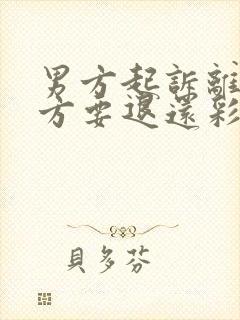 男方起訴離
方要退還彩
貝多芬